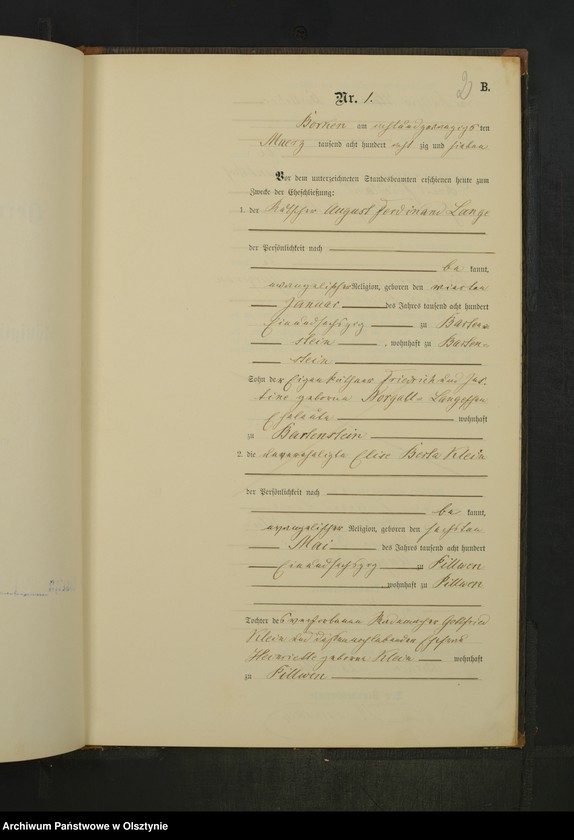 2
B.
Nr. 1.
Borken am achtundzwanzigsten
Maerz tausend acht hundert achtzig und sieben
Vor dem unterzeichneten Standesbeamten erschienen heute zum
Zwecke der Eheschließung:
1. der August Ferdinand Lange
der Persönlichkeit nach
be kannt,
evangelischer Religion, geboren den vierten
Januar des Jahres tausend acht hundert
einundsechszig zu Barten-
stein, wohnhaft zu Barten-
stein
Sohn der Eigenkäthner Friedrich und Jus-
tine geborne Norgall- Langeschen
Eheleute wohnhaft
zu Bartenstein
2. die unverehelichte Elise Berta Klein
der Persönlichkeit nach
be kannt,
evangelischer Religion, geboren den sechsten
Mai des Jahres tausend acht hundert
einundsechszig zu Pillwen
, wohnhaft zu Pillwen
Tochter des verstorbenen Rademacher Gottfried
Klein und dessen nachlebenden Ehefrau
Henriette geborne Klein wohnhaft
zu Pillwen
Archiwum Państwowe w Olsztynie